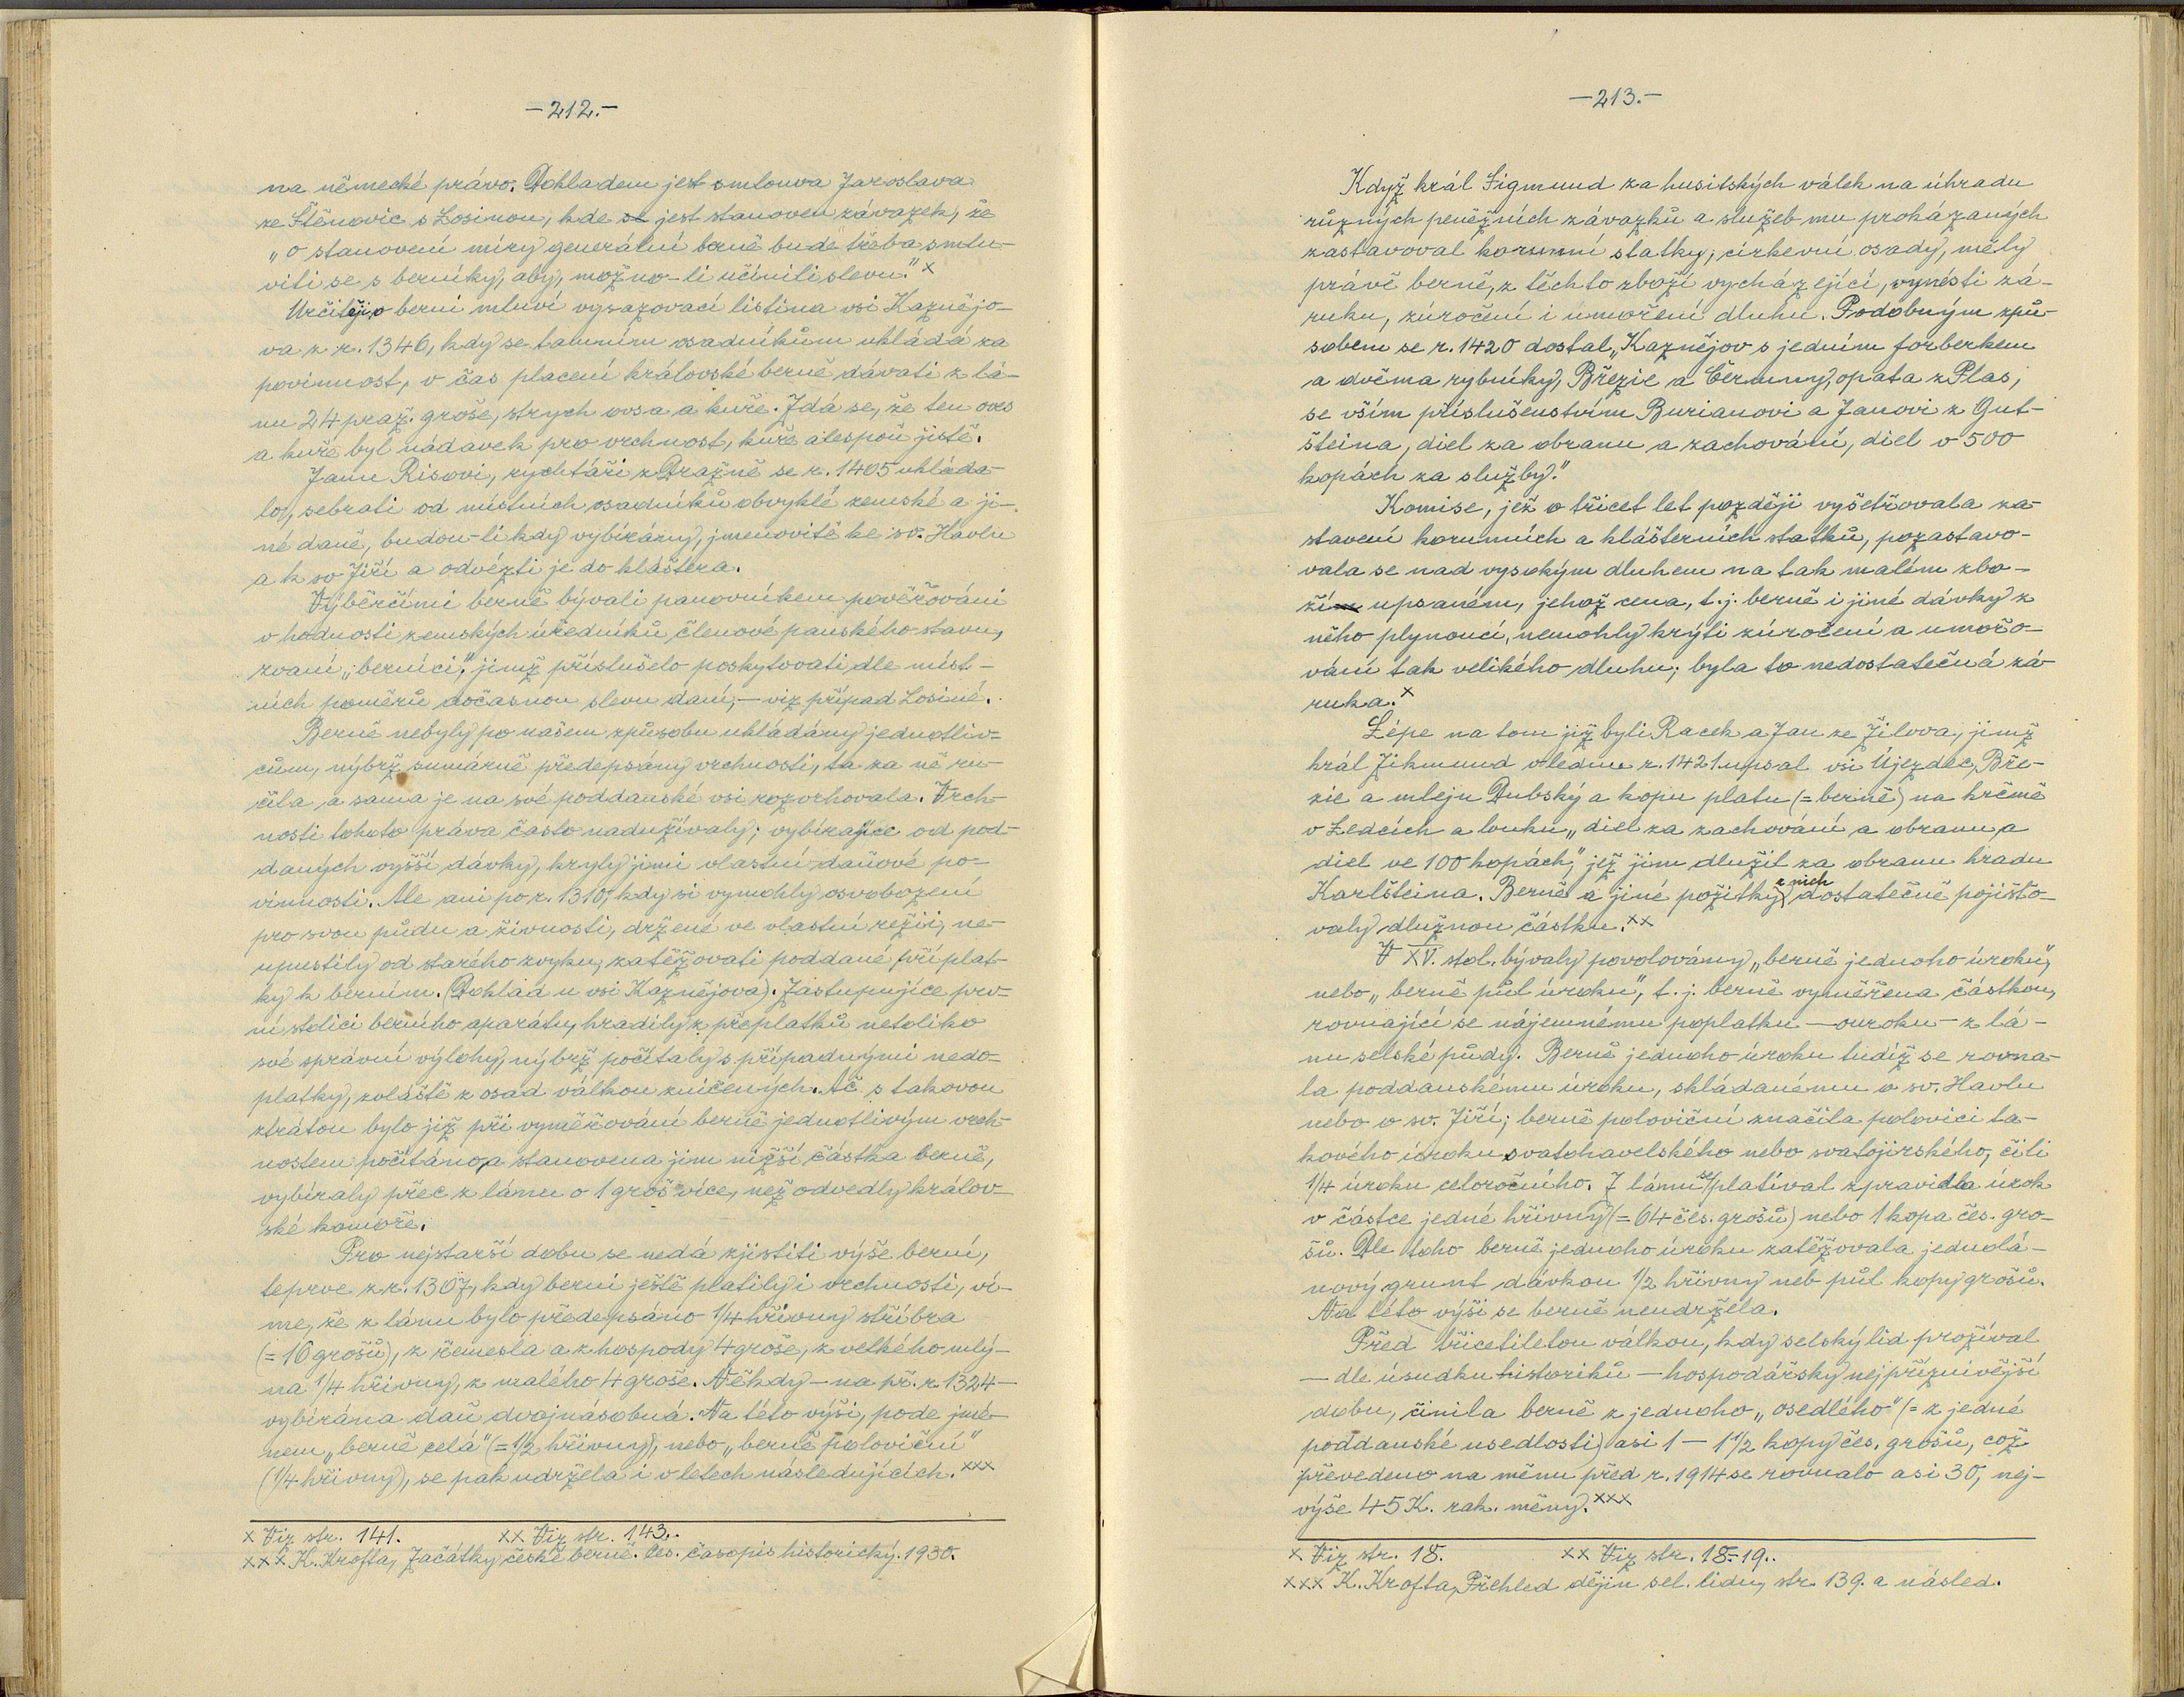 —212.—
na německé právo. Dokladem jest smlouva Jaroslava
ze Štěnovic s Losinou, kde se jest stanoven závazek, že
„o stanovení míry generální berně bude třeba smlu-
viti se s berníky, aby, možno-li učinili slevu.” x
Určitěji o berni mluví vysazovací listina vsi Kaznějo-
va z r. 1346, kdy se tamním osadníkům ukládá za
povinnost, v čas placení královské berně dávati z lá-
nu 24 praž. groše, strych ovsa a kuře. Zdá se, že ten oves
a kuře byl nádavek pro vrchnost, kuře alespoň jistě.
Janu Risovi, rychtáři z Dražně se r. 1405 ukláda-
lo, sebrati od místních osadníků obvyklé zemské a ji-
né daně, budou-li kdy vybírány, jmenovitě ke sv. Havlu
a k sv Jiří a odvézti je do kláštera.
Výběrčími berně bývali panovníkem pověřováni
v hodnosti zemských úředníků členové panského stavu,
zvaní „berníci,” jimž příslušelo poskytovati dle míst-
ních poměrů dočasnou slevu daní, — viz případ Losiné.
Berně nebyly po našem způsobu ukládány jednotliv-
cům, nýbrž sumárně předepsány vrchnosti, ta za ně ru-
čila a sama je na své poddanské vsi rozvrhovala. Vrch-
nosti tohoto práva často nadužívaly; vybírajíce od pod-
daných vyšší dávky, kryly jimi vlastní daňové po-
vinnosti. Ale ani po r. 1310, kdy si vymohly osvobození
pro svou půdu a živnosti, držené ve vlastní režii, ne-
upustily od starého zvyku, zatěžovati poddané příplat-
ky k berním. (Doklad u vsi Kaznějova). Zastupujíce prv-
ní stolici berního aparátu, hradily z přeplatků netoliko
své správní výlohy, nýbrž počítaly s případnými nedo-
platky, zvláště z osad válkou zničených. Ač s takovou
ztrátou bylo již při vyměřování berně jednotlivým vrch-
nostem počítáno, a stanovena jim nižší částka berně,
vybíraly přec z lánu o 1 groš více, než odvedly králov-
ské komoře.
Pro nejstarší dobu se nedá zjistiti výše berní,
teprve z r. 1307, kdy berni ještě platily i vrchnosti, ví-
me, že z lánu bylo předepsáno 1/4 hřivny stříbra
(= 16 grošů), z řemesla a z hospody 4 groše, z velkého mlý-
na 1/4 hřivny, z malého 4 groše. Někdy — na př. r. 1324 —
vybírána daň dvojnásobná. Na této výši, pode jmé-
nem „berně celá” (= 1/2 hřivny), nebo „berně poloviční”
(1/4 hřivny), se pak udržela i v letech následujících. xxx
x Viz str. 141. xx Viz str. 143.
xxx K. Krofta, Začátky české berně. Čes. časopis historický. 1930.
—213.—
Když král Sigmund za husitských válek na úhradu
různých peněžních závazků a služeb mu prokázaných
zastavoval korunní statky, církevní osady, měly
právě berně, z těchto zboží vycházející, vynésti zá-
ruku, zúročení i úmoření dluhu. Podobným způ-
sobem se r. 1420 dostal „Kaznějov s jedním forberkem
a dvěma rybníky, Břězie a Čermný, opata z Plas,
se vším příslušenstvím Burianovi a Janovi z Gut-
šteina, diel za obranu a zachování, diel v 500
kopách za služby.”
Komise, jež o třicet let později vyšetřovala za-
stavení korunních a klášterních statků, pozastavo-
vala se nad vysokým dluhem na tak malém zbo-
ží upsaném, jehož cena, t. j. berně i jiné dávky z
něho plynoucí, nemohly krýti zúročení a umořo-
vání tak velikého dluhu; byla to nedostatečná zá-
ruka. x
Lépe na tom již byli Racek a Jan ze Žilova, jimž
král Zikmund vlednu r. 1421 upsal vsi Újezdec, Bře-
zie a mlejn Dubský a kopu platu (= berně) na krčmě
v Ledcích a louku „diel za zachování a obranu a
diel ve 100 kopách,” jež jim dlužil za obranu hradu
Karlšteina. Berně a jiné požitky z nich dostatečně pojišťo-
valy dlužnou částku. xx
V XV. stol. bývaly povolovány „berně jednoho úroku,”
nebo „berně půl úroku”, t. j. berně vyměřena částkou,
rovnající se nájemnému poplatku — ouroku — z lá-
nu selské půdy. Berně jednoho úroku tudíž se rovna-
la poddanskému úroku, skládanému o sv. Havlu
nebo o sv. Jiří; berně poloviční značila polovici ta-
kového úroku svatohavelského nebo svatojirského, čili
1/4 úroku celoročního. Z lánu se platíval zpravidla úrok
v částce jedné hřivny (= 64 čes. grošů) nebo 1 kopa čes. gro-
šů. Dle toho berně jednoho úroku zatěžovala jednolá-
nový grunt dávkou 1/2 hřivny neb půl kopy grošů.
Na této výši se berně neudržela.
Před třicetiletou válkou, kdy selský lid prožíval
— dle úsudku historiků — hospodářsky nejpříznivější
dobu, činila berně z jednoho „osedlého” (= z jedné
poddanské usedlosti) asi 1 — 1 1/2 kopy čes. grošů, což
převedeno na měnu před r. 1914 se rovnalo asi 30, nej-
výše 45 K. rak. měny. xxx
x Viz str. 18. xx Viz str. 18-19.
xxx K. Krofta, Přehled dějin sel. lidu, str. 139. a násled.